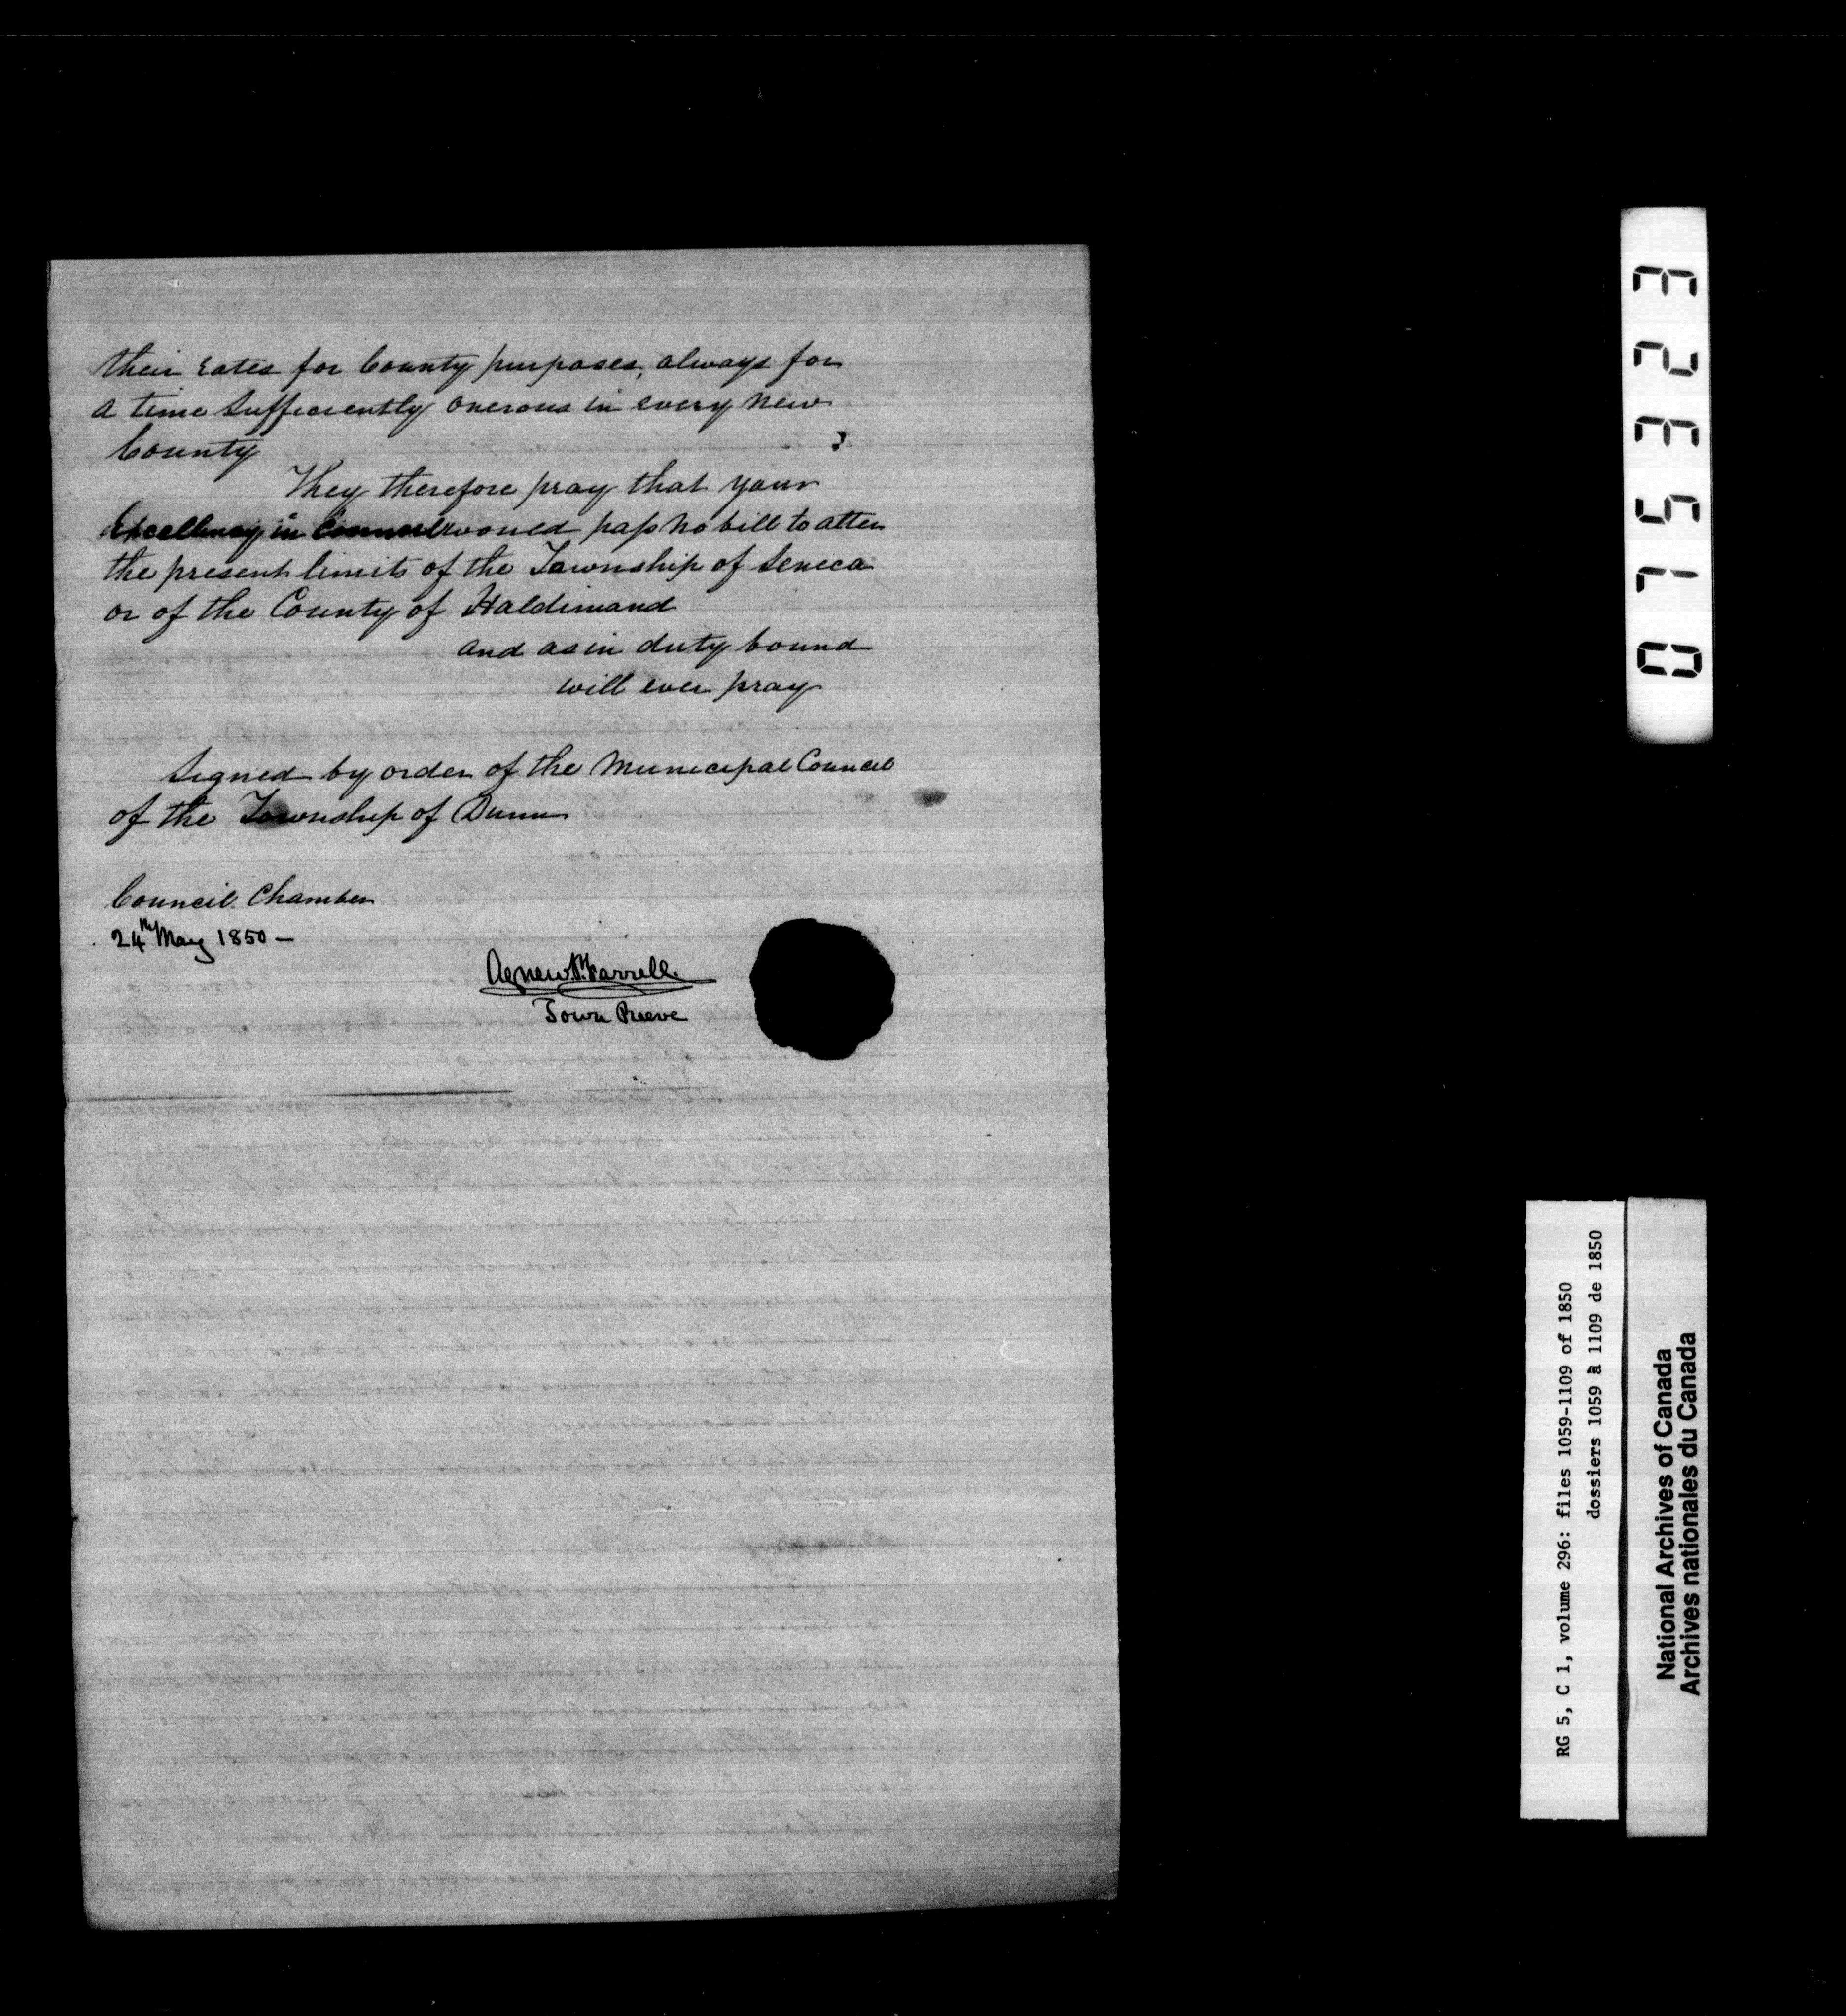 their rates for County purposes, always for
a time sufficiently onerous in every new
County
They therefore pray that your
Excellency in Council would pass no bill to alter
the present limits of the Township of Seneca
or of the County of Haldimand
and as in duty bound
will ever pray
Signed by order of the Municipal Council
of the Township of Dunn
Council Chamber
24th May 1850 —
Agnew P. Farrell
Town Reeve
075323
RG 5, C 1, volume 296: files 1059-1109 of 1850
dossiers 1059 à 1109 de 1850
National Archives of Canada
Archives nationales du Canada